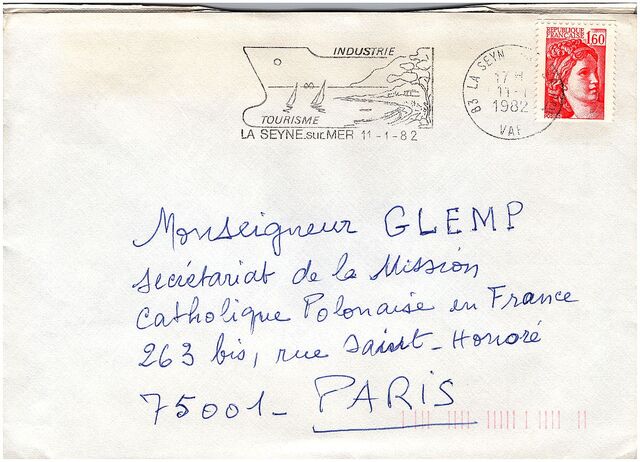 INDUSTRIE
TOURISME
LA SEYNE.sur.MER 11-1-82
83 LA SEYN
17 H
11-1
1982
VAR
REPUBLIQUE
FRANÇAISE
1,60
Monseigneur GLEMP
Secrétariat de la Mission
Catholique Polonaise en France
263 bis, rue Saint-Honoré
75001- PARIS